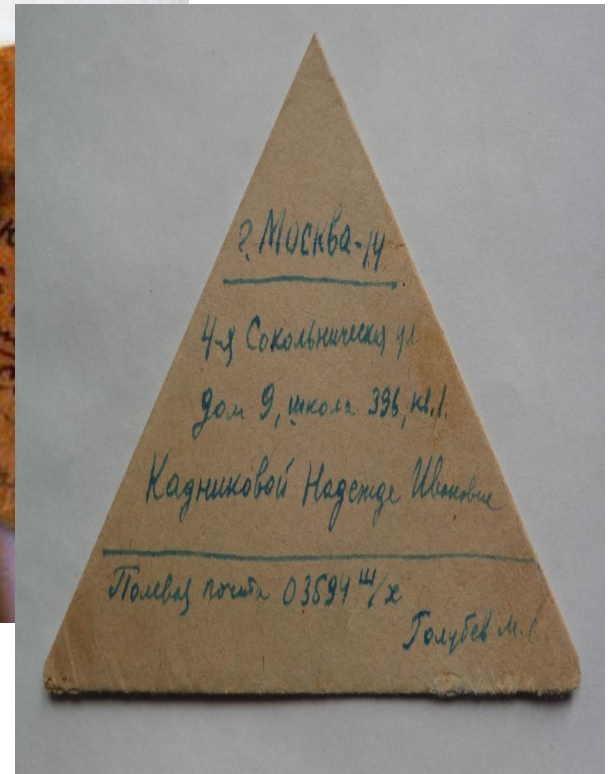 г. Москва-14
4-я Сокольническая ул
дом 9, школа 396, кв. 1.
Кадниковой Надежде Ивановне
Полевая почта 03594 Ш/х
Голубев М.